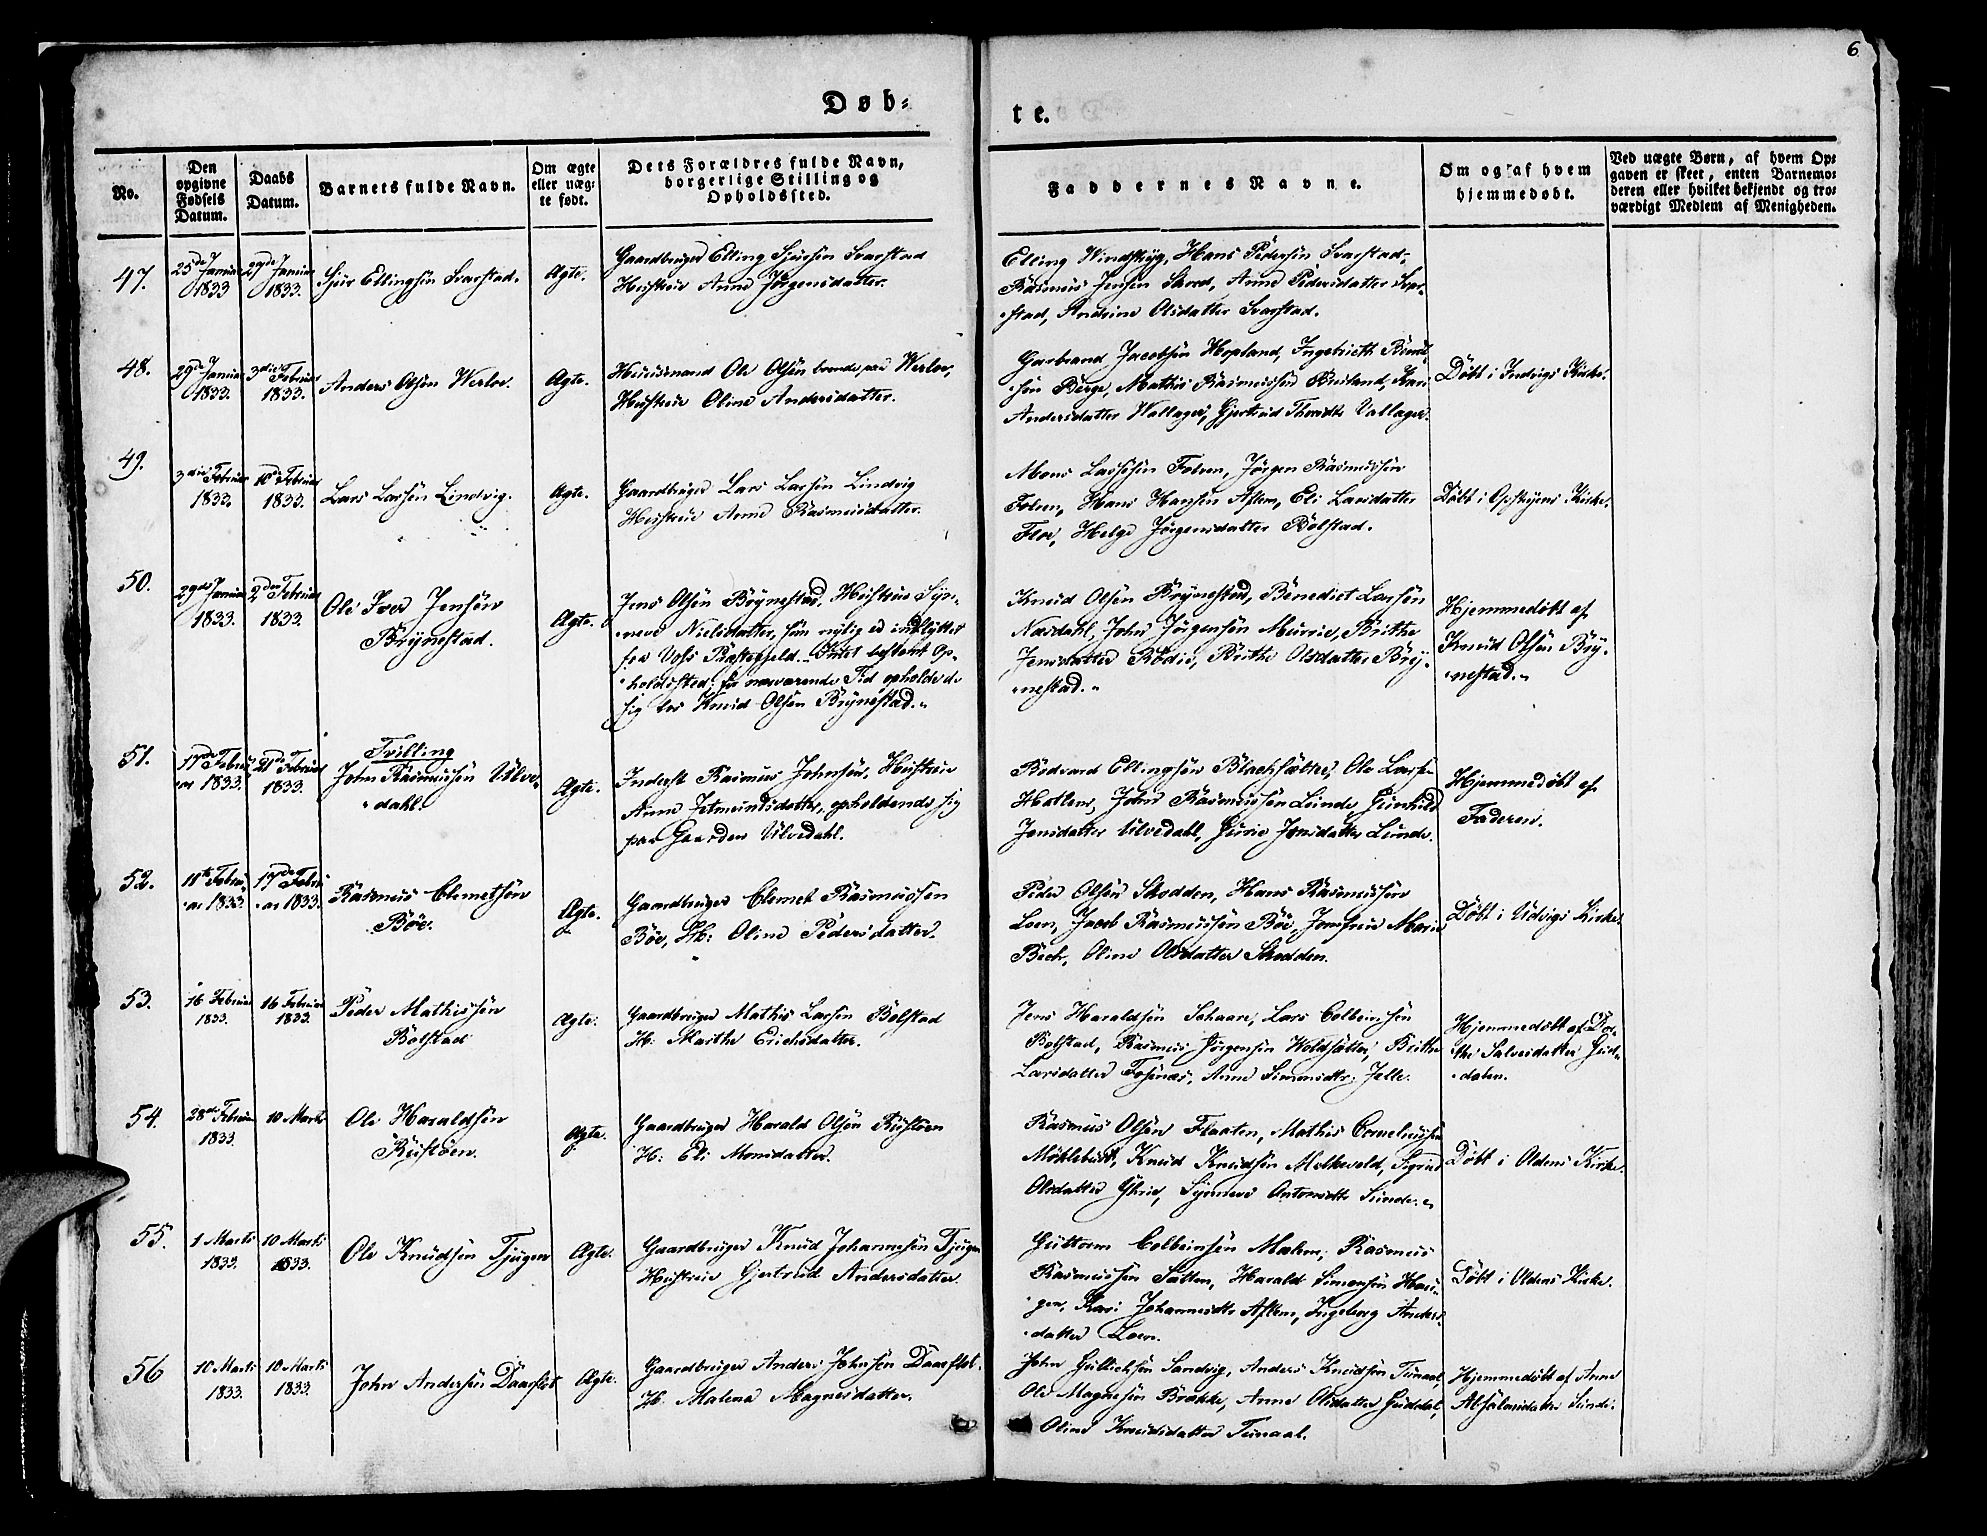 6
Døb=
te.
No.
Den opgivne Fødsels Datum.
Daabs Datum.
Barnets fulde Navn.
Om ægte eller uæg= te født.
Dets Forældres fulde Navn, borgerlige Stilling og Opholdssted.
Faddernes Navne.
Om og af hvem hjemmedøbt.
Ved uægte Børn, af hvem Op= gaven er skeet, enten Barnemo= deren eller hvilket bekjendt og tro= værdigt Medlem af Menigheden.
47.
25de Januar 1833
27de Januar 1833.
Sjur Ellingsen Svarstad.
Ægte.
Gaardbruger Elling Sjursen Svarstad
Hustrue Anne Jörgensdatter.
Elling Windskyg, Hans Pedersen Svarstad,
Rasmus Jensen Skred, Anne Pedersdatter Svar-
stad, Andrine Olsdatter Svarstad.
48.
29de Januar 1833.
3die Februar 1833.
Anders Olsen Werlov.
Ægte.
Huusmand Ole Olsen boende paa Werlov,
Hustrue Oline Andersdatter.
Garbrand Jacobsen Hopland, Ingebrieth
sen Berge, Mathis Rasmussen Kari
Andersdatter Wallager, Gjertrud Wallager.
Döbt i Indvigs Kirke.
49.
3die Februar 1833.
10de Februar 1833.
Lars Larsen Lindvig.
Ægte.
Gaardbruger Lars Larsen Lindvig
Hustrue Anne Rasmusdatter.
Mons Lassesen Folven, Jörgen Rasmussen
Folven, Hans Hansen Aflem, Eli Larsdatter
Floe, Helge Jörgensdatter Bolstad.
Döbt i Opstryens Kirke.
50.
29de Januar 1833.
2den Februar 1833.
Ole Iver Jensen
Brynestad.
Ægte.
Jens Olsen Brynestad, Hustrue Syn-
neve Nielsdatter, som nylig er indflyttet
fra Voss Præstegjeld. Intet bestemt Op-
holdssted; for nærværende Tid opholde de
sig hos Knud Olsen Brynestad.
Knud Olsen Brynestad, Benedict Larsen
Nasdahl, John Jörgensen Murrie, Brithe
Jensdatter Rödie, Brithe Olsdatter Bry-
nestad.
Hjemmedöbt af
Knud Olsen Bry-
nestad.
51.
17de Febru-
ar 1833.
21de Februar 1833.
Tvilling
John Rasmussen Ulve-
dahl.
Ægte.
Inderst Rasmus Johnsen, Hustrue
Anne Jetmundsdatter, opholdende sig
paa Gaarden Ulvedahl.
Bodvard Ellingsen Blachsætter, Ole Larsen
Hatlem, John Rasmussen Lunde, Gunhild
Jensdatter Ulvedahl, Gurie Jensdatter Lunde.
Hjemmedöbt af
Faderen.
52.
11te Febru-
ar 1833.
17de Febru-
ar 1833.
Rasmus Clemetsen
Böe.
Ægte.
Gaardbruger Clemet Rasmussen
Böe, H: Oline Pedersdatter.
Peder Olsen Skodden, Hans Rasmussen
Loen, Jacob Rasmussen Böe, Jomfrue Marie
Bech, Oline Olsdatter Skodden.
Döbt i Udvigs Kirke.
53.
16 Februar 1833.
16 Februar 1833.
Peder Mathissen
Bolstad
Ægte.
Gaardbruger Mathis Larsen Bolstad
H: Marthe Erichsdatter.
Jens Haraldsen Schaare, Lars Colbeinsen
Bolstad, Rasmus Jörgensen Woldsætter, Brithe
Larsdatter Tosenæs, Anne Simonsdtr Jelle.
Hjemmedöbt af Dor-
the Salvesdatter Gud-
dalen.
54.
28de Februar 1833.
10 Marts
Ole Haraldsen
Rustöen.
Ægte.
Gaardbruger Harald Olsen Rustöen
H: Eli Monsdatter.
Rasmus Olsen Flaaten, Mathis Corneliussen
Möklebust, Knud Knudsen Melkevold, Sigrid
Olsdatter Yhrie, Synneve Antonsdtr Sunde.
Döbt i Oldens Kirke.
55.
1 Marts 1833.
10 Marts 1833.
Ole Knudsen Tjugen
Ægte.
Gaardbruger Knud Johannesen Tjugen
Hustrue Gjertrud Andersdatter.
Guttorm Colbeinsen Malem, Rasmus
Rasmussen Sætten, Harald Simonsen Hau-
gen, Kari Johannesdtr Aflem, Ingeborg Anders-
datter Loen.
Döbt i Oldens Kirke.
56
10 Marts 1833.
10 Marts 1833.
John Andersen Daarflot
Ægte.
Gaardbruger Anders Johnsen Daarflot.
H. Malena Magnesdatter.
John Gullichsen Sandvig, Anders Knudsen Tunaal,
Ole Magnesen Brække, Anne Olsdatter Guddal,
Oline Knudsdatter Tunaal.
Hjemmedöbt af Anne
Absalonsdatter Sunde.